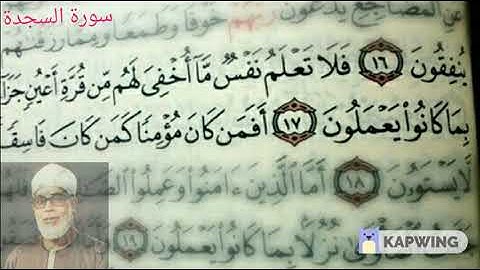 سورة السجدة
عَنِ ٱلْمَضَاجِعِ يَدْعُونَ رَبَّهُمْ خَوْفًا وَطَمَعًا وَمِمَّا رَزَقْنَٰهُمْ
يُنفِقُونَ ١٦ فَلَا تَعْلَمُ نَفْسٌ مَّآ أُخْفِىَ لَهُم مِّن قُرَّةِ أَعْيُنٍ جَزَآ
بِمَا كَانُوا۟ يَعْمَلُونَ ١٧ أَفَمَن كَانَ مُؤْمِنًا كَمَن كَانَ فَاسِقًا
لَّا يَسْتَوُۥنَ ١٨ أَمَّا ٱلَّذِينَ ءَامَنُوا۟ وَعَمِلُوا۟ فَلَهُمْ
نُزُلًۢا بِمَا كَانُوا۟ يَعْمَلُونَ ١٩
KAPWING